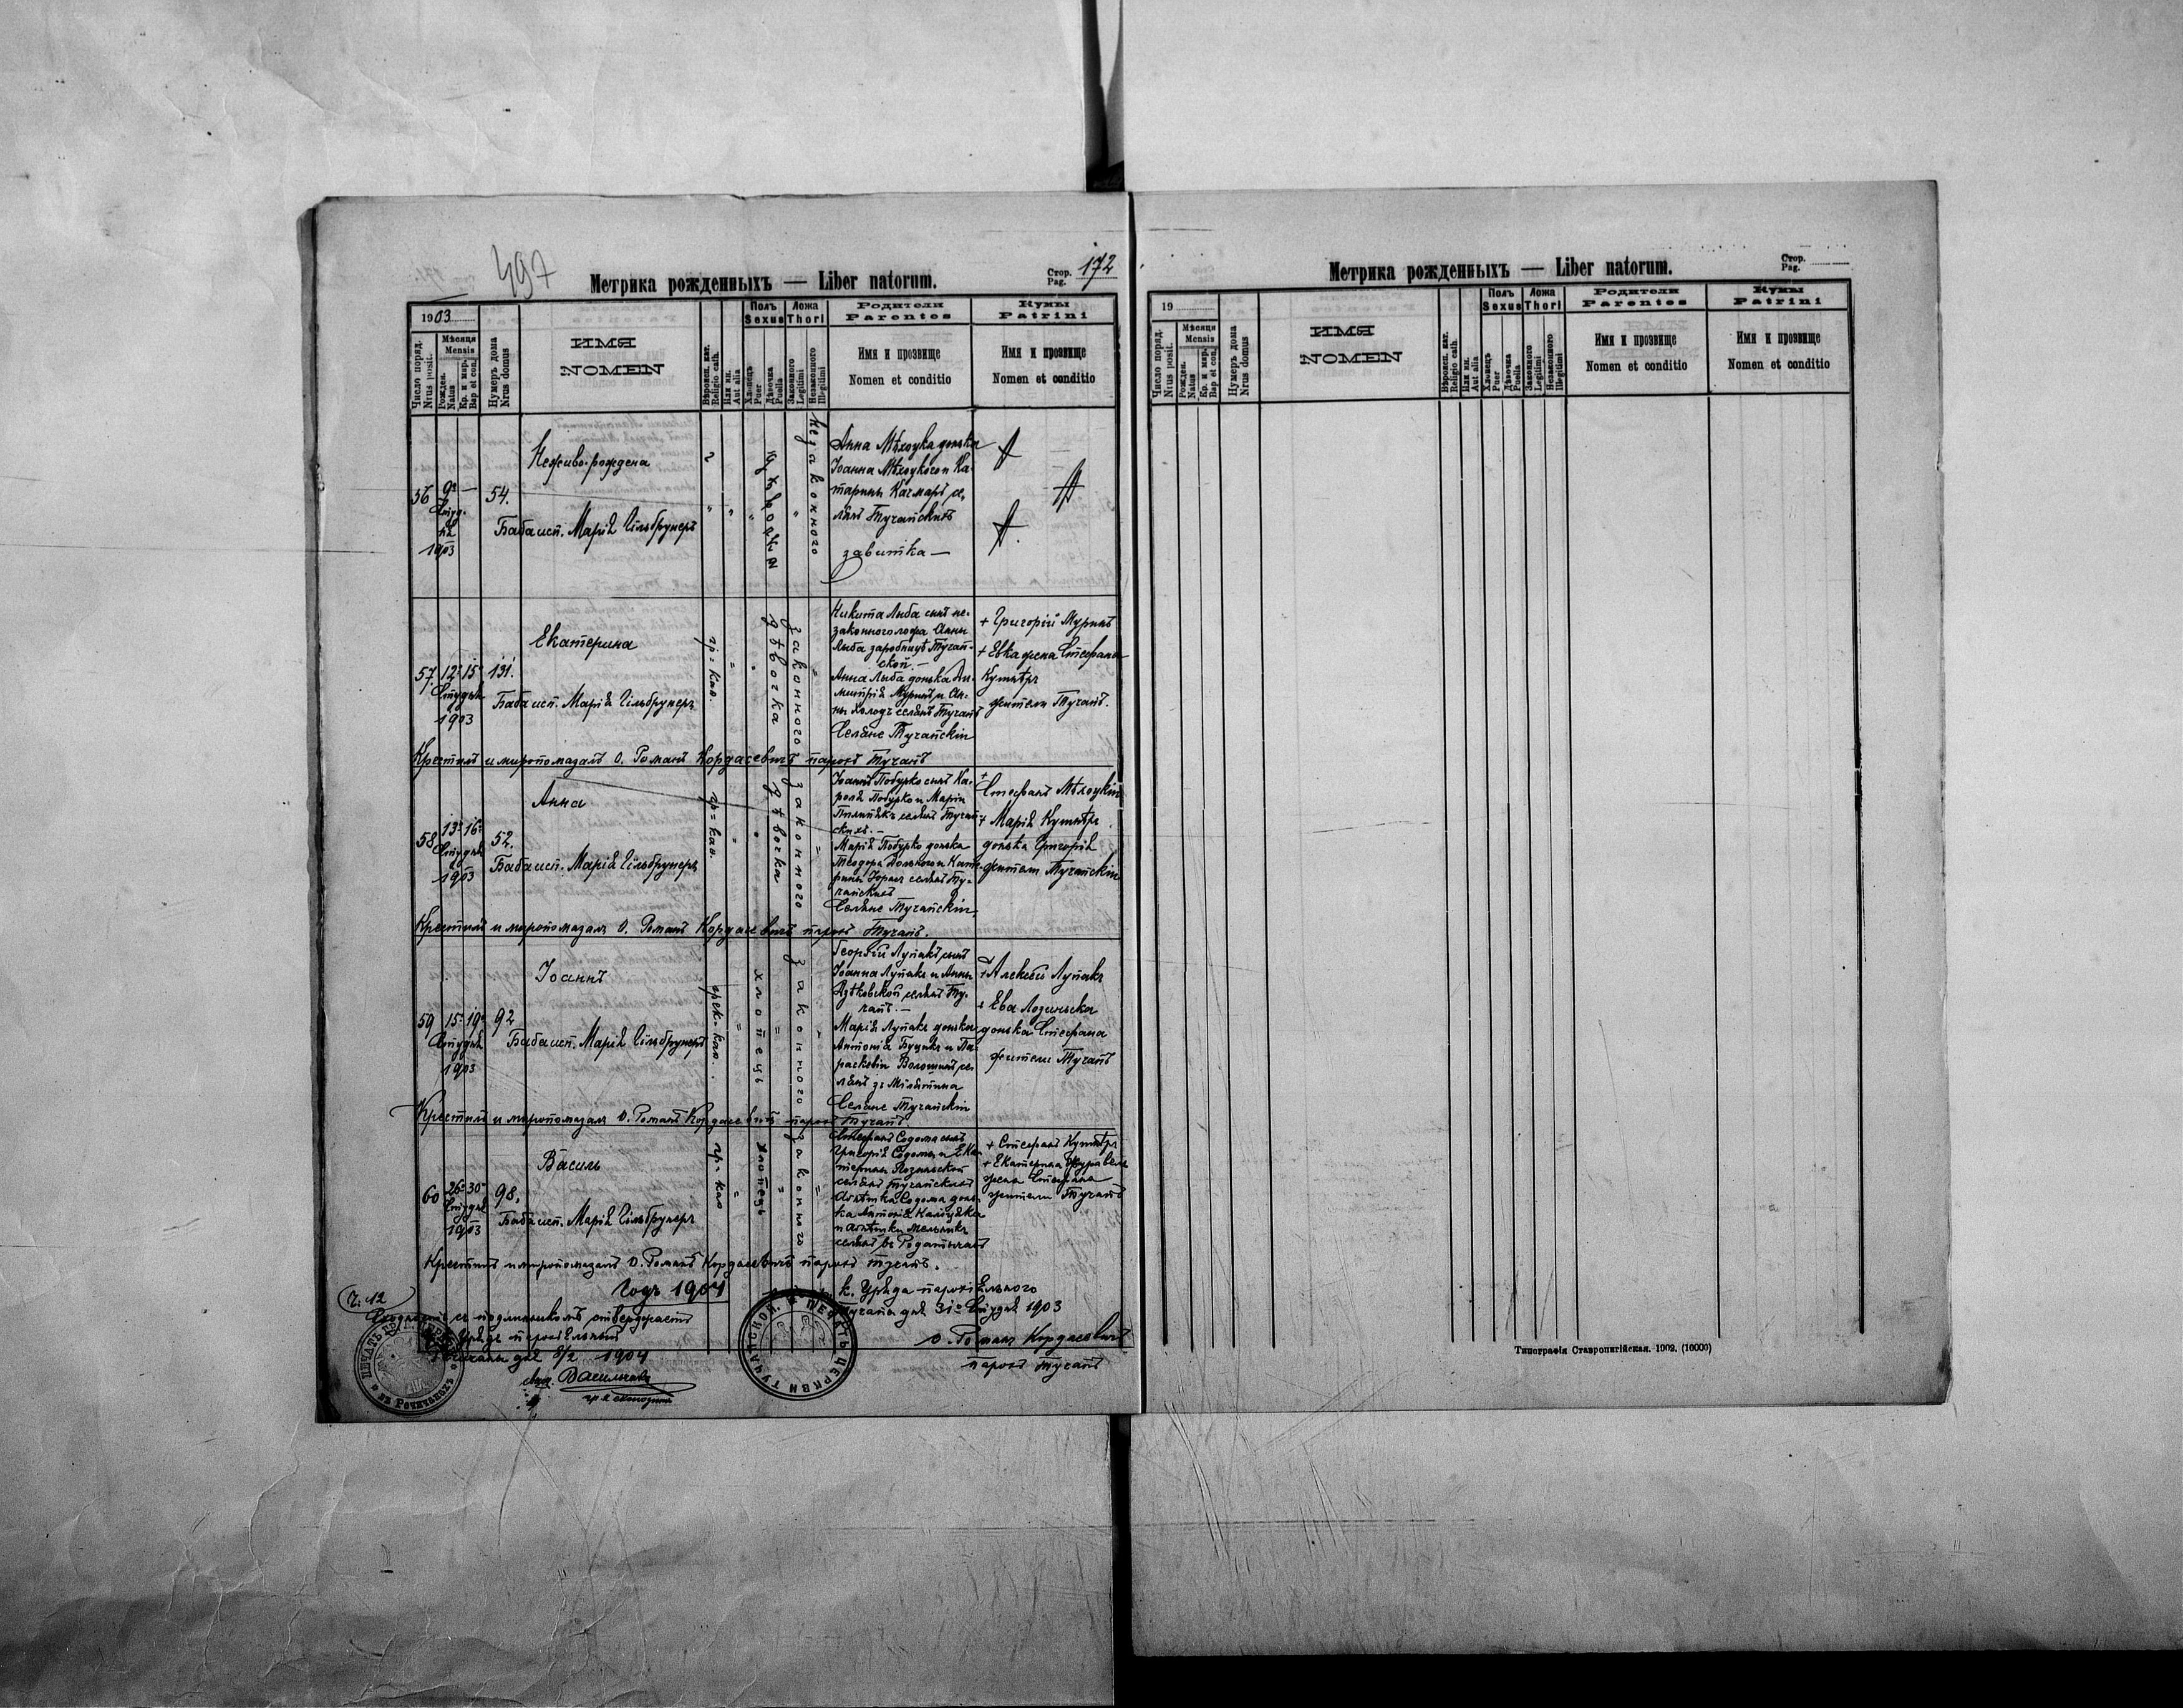 497
Метрика рожденныхъ — Liber natorum.
Стор. Pag. 172
1903
Число поряд. Nrus posit.
Мѣсяця Mensis
Рожден. Natus
Кр. и мир. Bap et con.
Нумеръ дома Nrus domus
ИМЯ
NOMEN
Вѣроисп. кат. Religio cath.
Или ин. Aut alia
Полъ Sexus
Хлопецъ Puer
Дѣвочка Puella
Ложа Thori
Законного Legitimi
Незаконного Illegitimi
Родители
Parentes
Имя и прозвище
Nomen et conditio
Кумы
Patrini
Имя и прозвище
Nomen et conditio
56 9 — 54.
1903
Неживо рождена
Баба исп. Марія Гільбрунеръ
дѣвочка
незаконного
Анна Мѣхоцка донька
Іоанна Мѣхоцкого и Ка-
тарины Качмаръ се-
лянъ Тучапскихъ
завитка —
57. 12 15 131.
Студня
1903
Екатерина
Баба исп. Марія Гільбрунеръ
гр= кат.
дѣвочка
законного
Никита Лыба сынъ не-
законного ложа Анны
Лыба заробницѣ Тучап-
ской. —
Анна Лыба донька Ди-
митрія Муринъ и Ан-
ны Холодъ селянъ Тучапъ
Селяне Тучапскіи
+ Григорій Муринъ
+ Евка жена Стефана
Кушнѣръ
жители Тучапъ.
Крестилъ и миропомазалъ о. Романъ Кордасевичъ парохъ Тучапъ
58 13 16 52.
Студня
1903
Анна
Баба исп. Марія Гільбрунеръ
гр= кат.
дѣвочка
законного
Іоаннъ Побурко сынъ Ка-
роля Побурко и Маріи
селянъ Тучап-
скихъ. —
Марія Побурко донька
Теодора и Кате-
рины селянъ Ту-
чапскихъ
Селяне Тучапскіи
+
Стефанъ Мѣхоцкій
+ Марія Кушнѣръ
донька Григорія
жители Тучапскіи
Крестилъ и миропомазалъ о. Романъ Кордасевичъ парохъ Тучапъ.
59 15 19 92
Студня
1903
Іоаннъ
Баба исп. Марія Гільбрунеръ
грек= кат.
хлопецъ
законного
Георгій Лупакъ сынъ
Іоанна Лупакъ и Анны
селянъ Ту-
чапъ. —
Марія Лупакъ донька
Антонія Буцикъ и Па-
раскевіи Волошинъ се-
лянъ зъ Милятина
Селяне Тучапскіи
+ Алексѣй Лупакъ
+ Ева Лозиньска
донька Стефана
жители Тучапъ
Крестилъ и миропомазалъ о. Романъ Кордасевичъ парохъ Тучапъ.
60 26 30 98.
Студня
1903
Василь
Баба исп. Марія Гільбрунеръ
гр= кат
хлопецъ
законного
Стефанъ Содома сынъ
Григорія Содомы и Ека-
терины Лозиньской
селянъ Тучапскихъ
Содома донь-
ка Антонія
и Мельникъ
селянъ въ Родатычахъ
+ Стефанъ Кушнѣръ
+ Екатерина Журавель
жена Стефана
жители Тучапъ
Крестилъ и миропомазалъ о. Романъ Кордасевичъ парохъ Тучапъ.
Годъ 1904
Ч. 12
съ подлинникомъ ствверджаєтъ
Урядъ парохіяльный
дня 8/2 1904
Василь
гр. к.
ПЕЧАТЬ
въ Речичанахъ
ПЕЧАТЬ ЦЕРКВИ ТУЧАПСКОИ
к. Уряда парохіяльного
Тучапы дня 31 Студня 1903
о. Романъ Кордасевичъ
парохъ Тучапъ
Метрика рожденныхъ — Liber natorum.
Стор. Pag.
19
Число поряд. Nrus posit.
Мѣсяця Mensis
Рожден. Natus
Кр. и мир. Bap et con.
Нумеръ дома Nrus domus
ИМЯ
NOMEN
Вѣроисп. кат. Religio cath.
Или ин. Aut alia
Полъ Sexus
Хлопецъ Puer
Дѣвочка Puella
Ложа Thori
Законного Legitimi
Незаконного Illegitimi
Родители
Parentes
Имя и прозвище
Nomen et conditio
Кумы
Patrini
Имя и прозвище
Nomen et conditio
Типографія Ставропигійская. 1902. (10000)